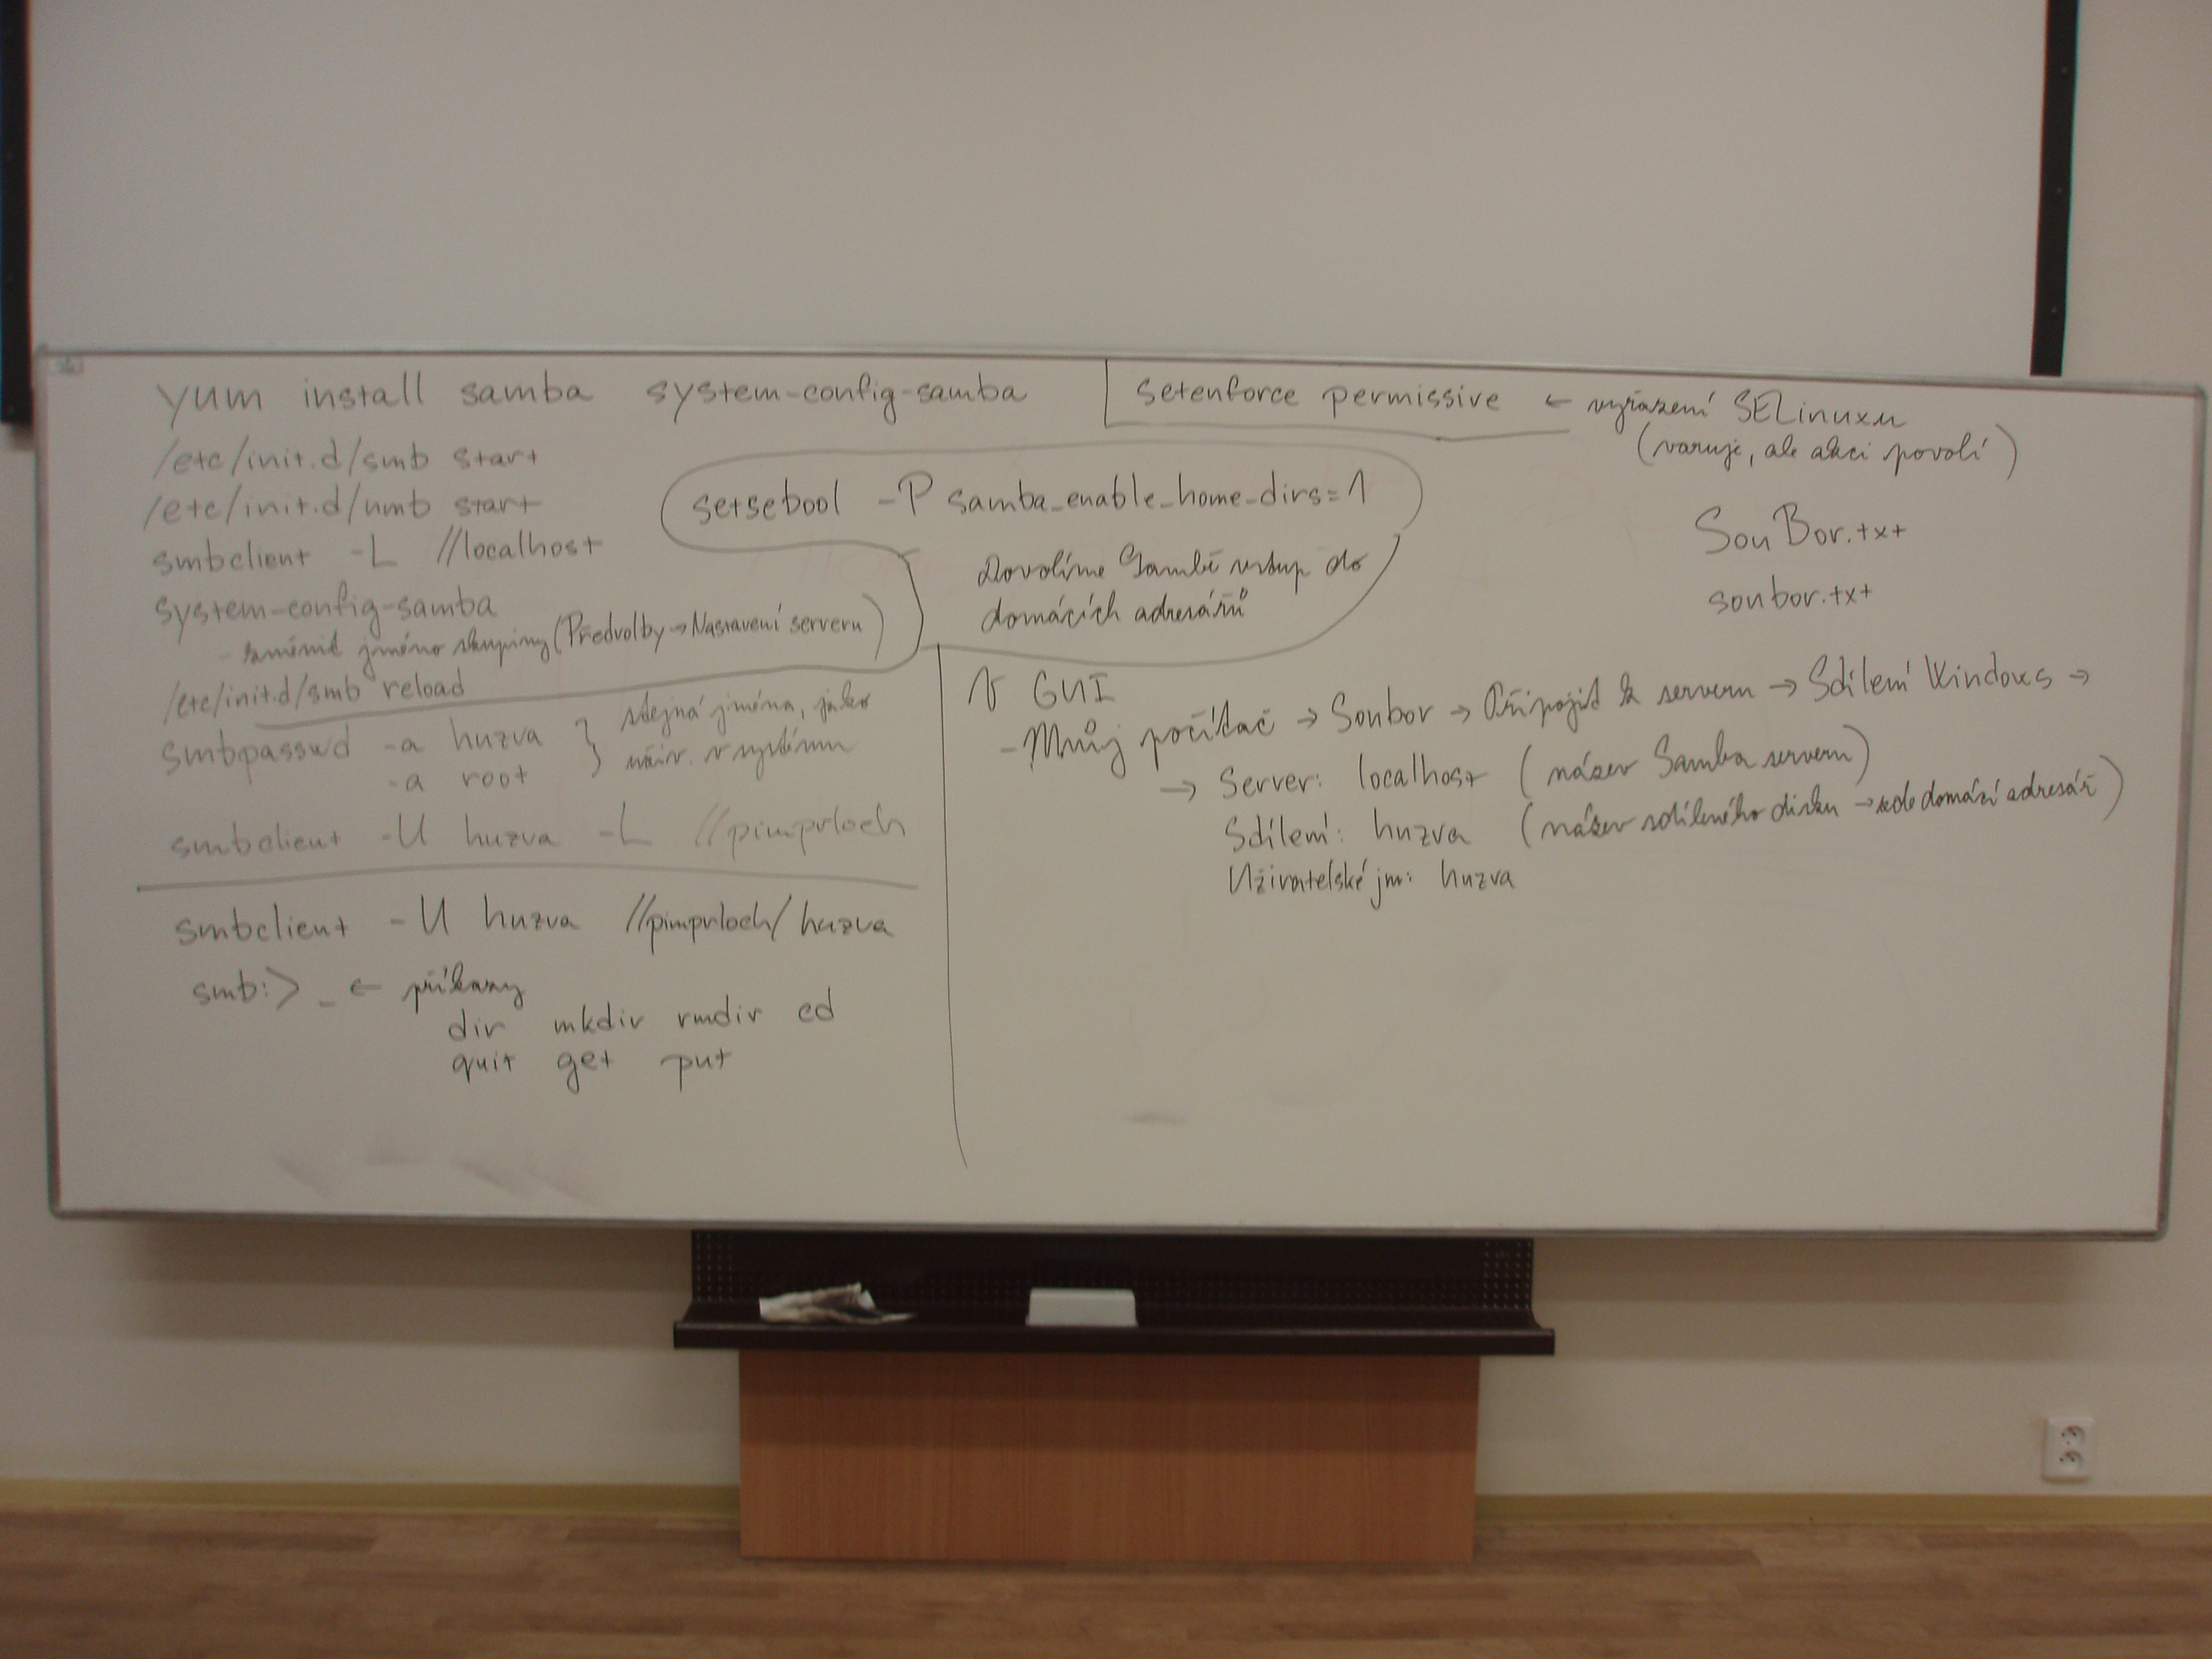 yum install samba system-config-samba
/etc/init.d/smb start
/etc/init.d/nmb start
smbclient -L //localhost
system-config-samba
- změnit jméno skupiny (Předvolby → Nastavení serveru)
/etc/init.d/smb reload
smbpasswd -a huzva } stejná jména, jako
-a root } v systému
smbclient -U huzva -L //pimprloch
smbclient -U huzva //pimprloch/huzva
smb:> _ ← příkazy
dir mkdir rmdir cd
quit get put
setenforce permissive ← vyřazení SELinuxu
(varuje, ale akci povolí)
setsebool -P samba_enable_home_dirs=1
Dovolíme Sambě vstup do
domácích adresářů
SouBor.txt
soubor.txt
V GUI
- Můj počítač → Soubor → Připojit k serveru → Sdílení Windows →
→ Server: localhost (název Samba serveru)
Sdílení: huzva (název sdíleného disku → zde domácí adresář)
Uživatelské jm: huzva